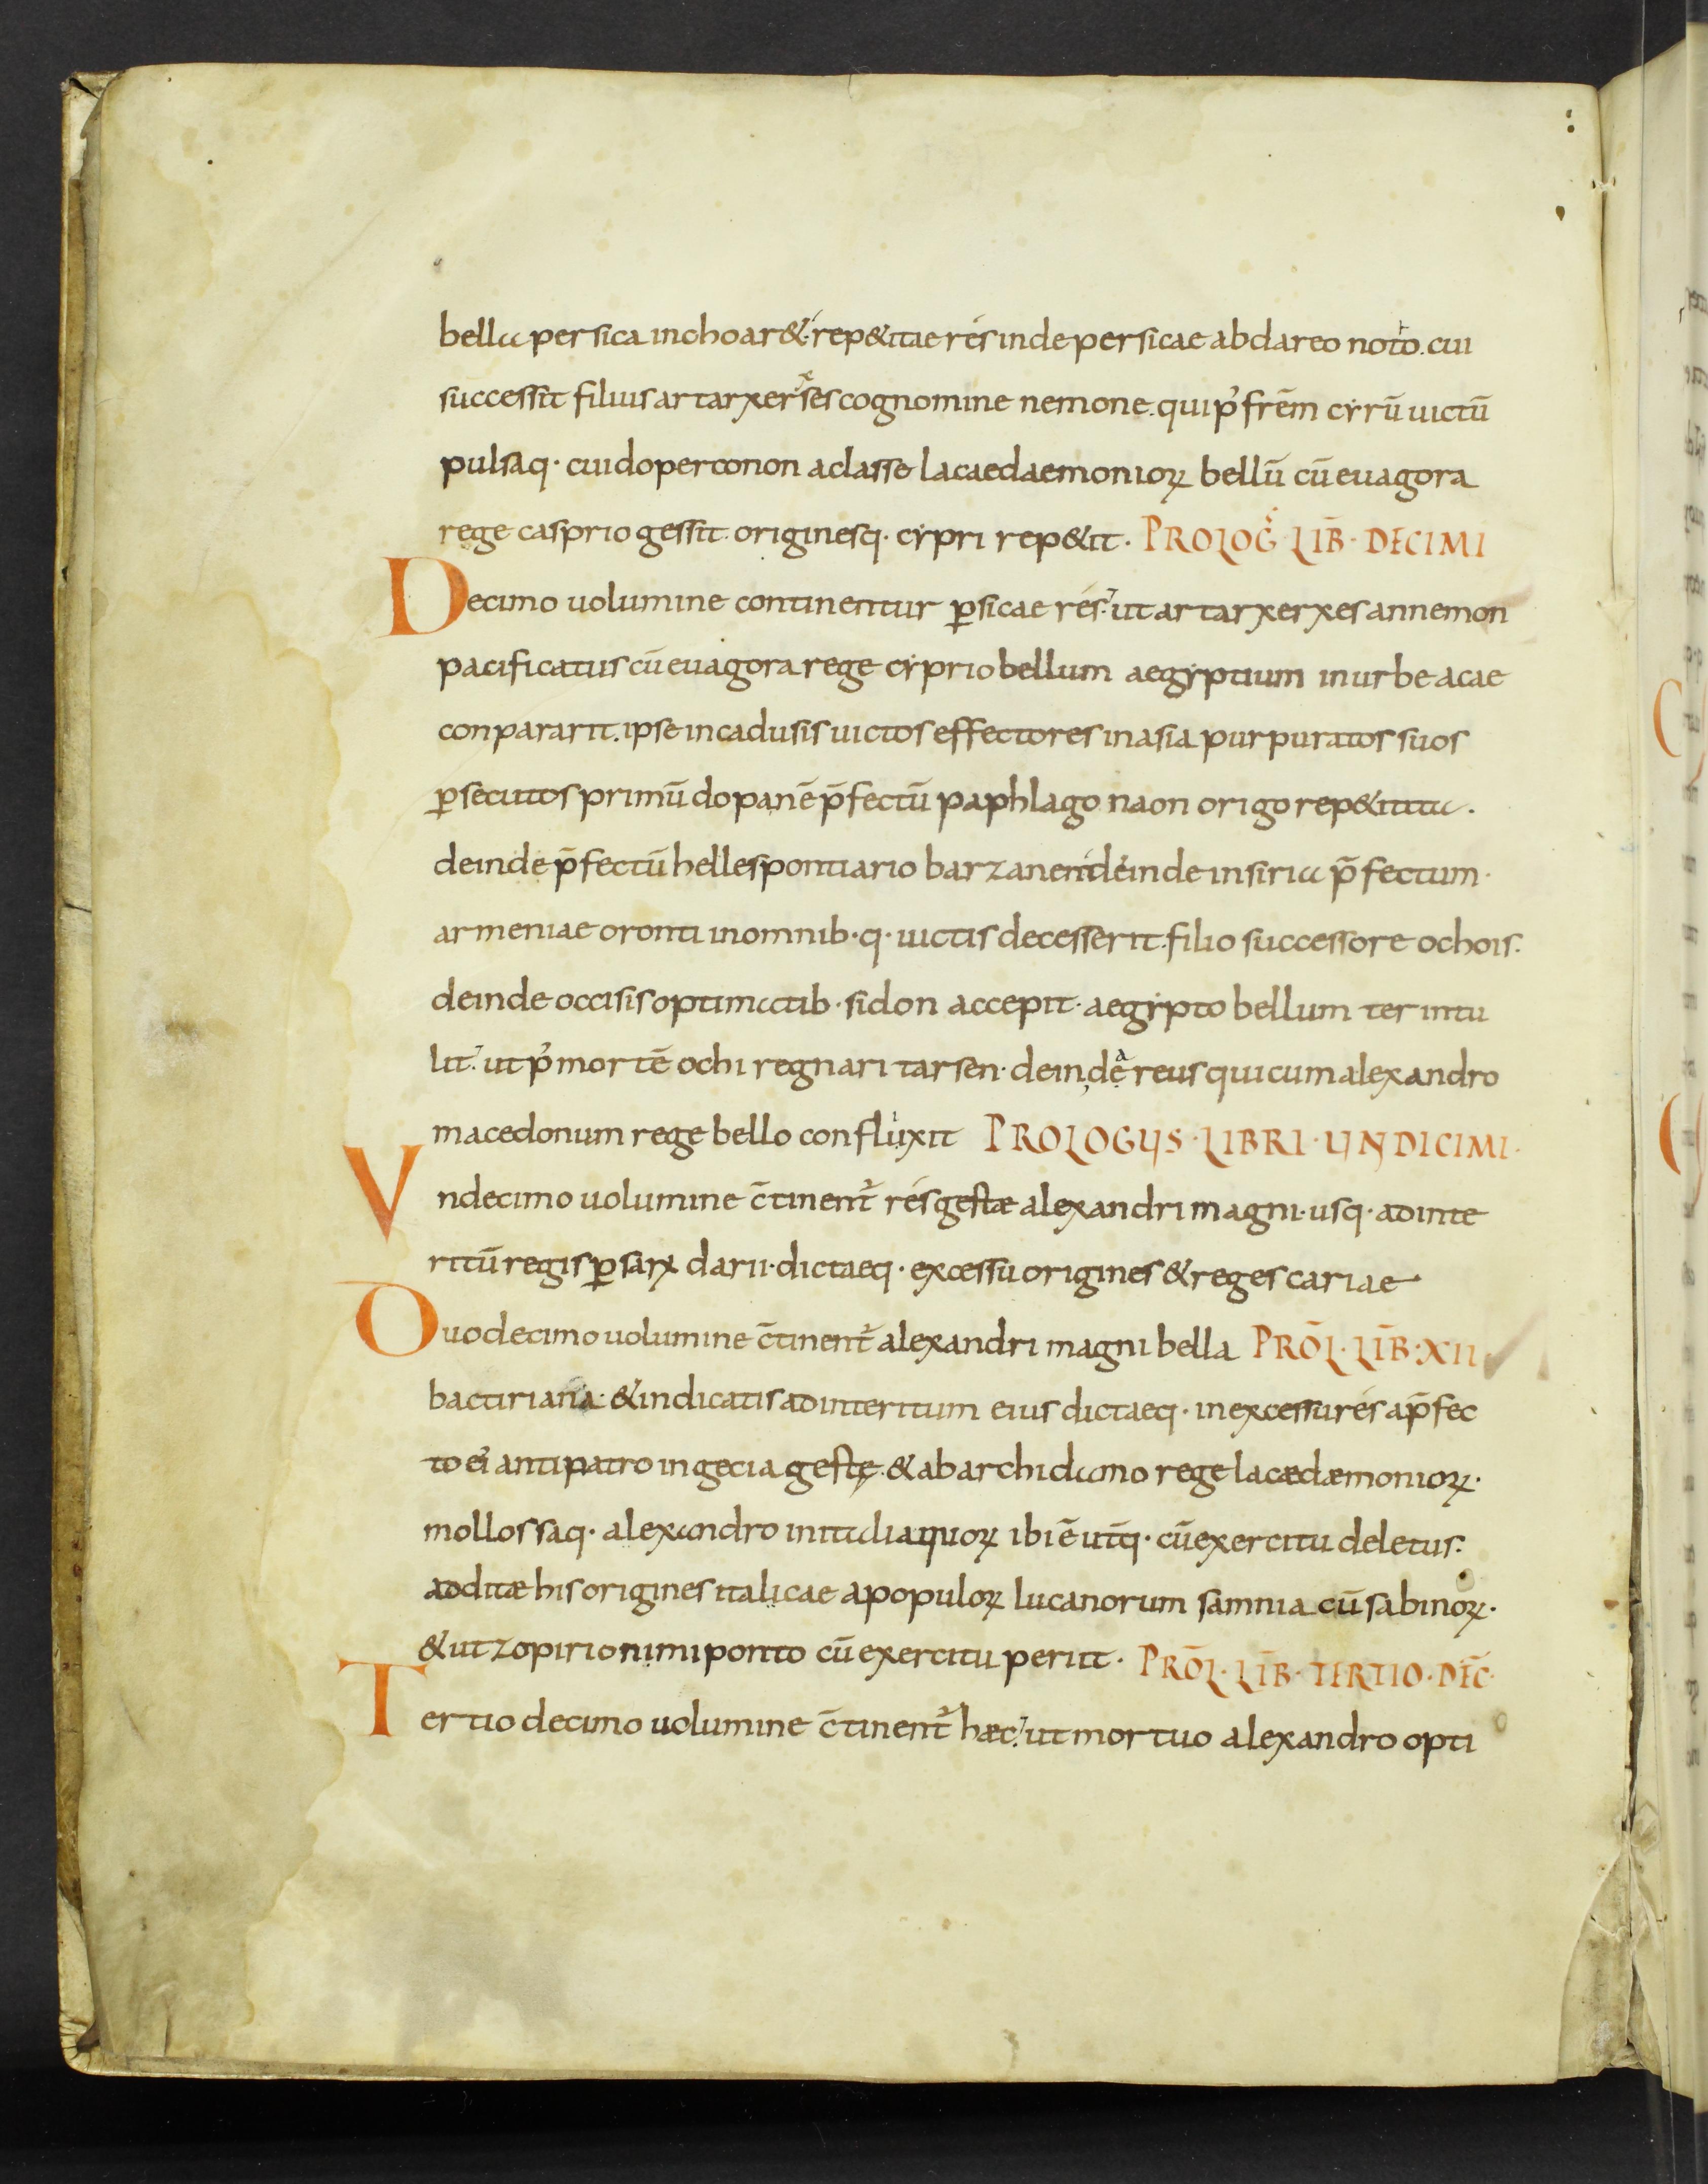 bella persica inchoar&. rep&itae rés inde persicae ab dareo noto. cui
successit filius artarxerses cognomine nemone. qui p' frēm cyrū uictū
pulsaq· cuido per conon a classe lacaedaemonioꝝ bellū cū euagora
rege casprio gessit. originesq· cypri rep&it. PROLOG LIB̄· DECIMI
Decimo uolumine continentur ꝑsicae rés. ut artarxerxes annemon
pacificatus cū euagora rege cyprio bellum aegyptium in urbe acae
conpararit. ipse in cadusis uictos effectores in asia purpuratos suos
ꝑsecutos primū dopanē p̄fectū paphlago naon origo rep&itita.
deinde p̄fectū hellespontiario barzanen deinde in siria p̄fectum·
armeniae oronti in omnib·q· uictis decesserit. filio successore ochois.
deinde occisis optimatib· sidon accepit· aegypto bellum ter intu
lit. ut p' mortē ochi regnari tarsen· deinde areus qui cum alexandro
macedonum rege bello confluxit PROLOGUS·LIBRI·UNDICIMI·
Vndecimo uolumine c̄tinent' rés gestae alexandri magni· usq· ad inte
ritū regis ꝑsarꝝ darii· dictaeq· excessu origines & reges cariae
Duodecimo uolumine c̄tinent' alexandri magni bella PRŌL·LIB̄:XII
bactiriana· & indicatis ad interitum eius dictaeq· in excessu rés a p̄fec
to ei' antipatro in gecia gestę· & ab archidamo rege lacædæmonioꝝ·
mollossaq· alexandro in italia quoꝝ ibi ē utq̄· cū exercitu deletus.
additæ his origines italicae apopuloꝝ lucanorum samnia cū sabinoꝝ·
& ut zopirionimi ponto cū exercitu periit· PRŌL·LIB̄·TERTIO·DEC̄·
Tertio decimo uolumine c̄tinent' hæc. ut mortuo alexandro opti